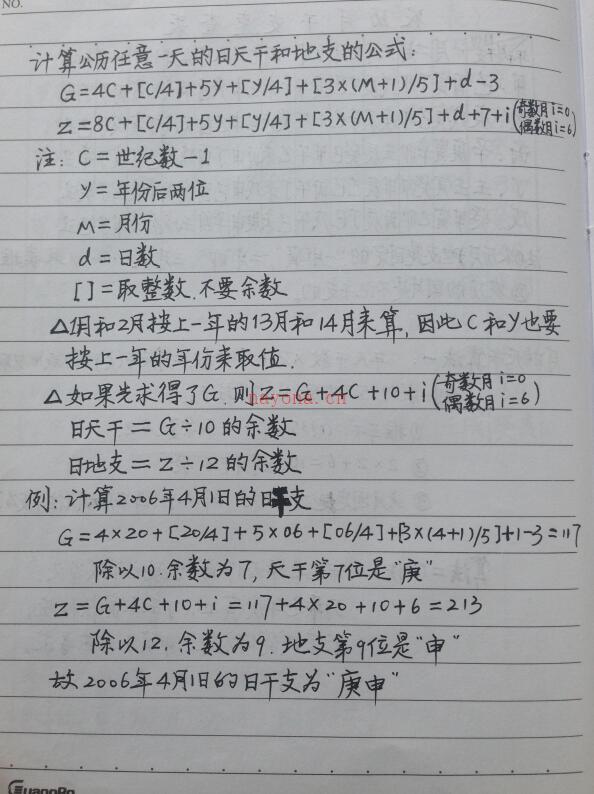 NO.
计算公历任意一天的日天干和地支的公式:
G=4C+[C/4]+5y+[y/4]+[3×(M+1)/5]+d-3
Z=8C+[C/4]+5y+[y/4]+[3×(M+1)/5]+d+7+i(奇数月i=0 偶数月i=6)
注: C=世纪数-1
y=年份后两位
M=月份
d=日数
[ ]=取整数.不要余数
△1月和2月按上一年的13月和14月来算,因此C和y也要
按上一年的年份来取值.
△如果先求得了G.则Z=G+4C+10+i(奇数月i=0 偶数月i=6)
nayona.cn
日天干=G÷10的余数
日地支=Z÷12的余数
例:计算2006年4月1日的日干支
G=4×20+[20/4]+5×06+[06/4]+[3×(4+1)/5]+1-3=117
除以10.余数为7,天干第7位是"庚"
Z=G+4C+10+i=117+4×20+10+6=213
除以12.余数为9.地支第9位是"申"
故2006年4月1日的日干支为"庚申"
GuangBo